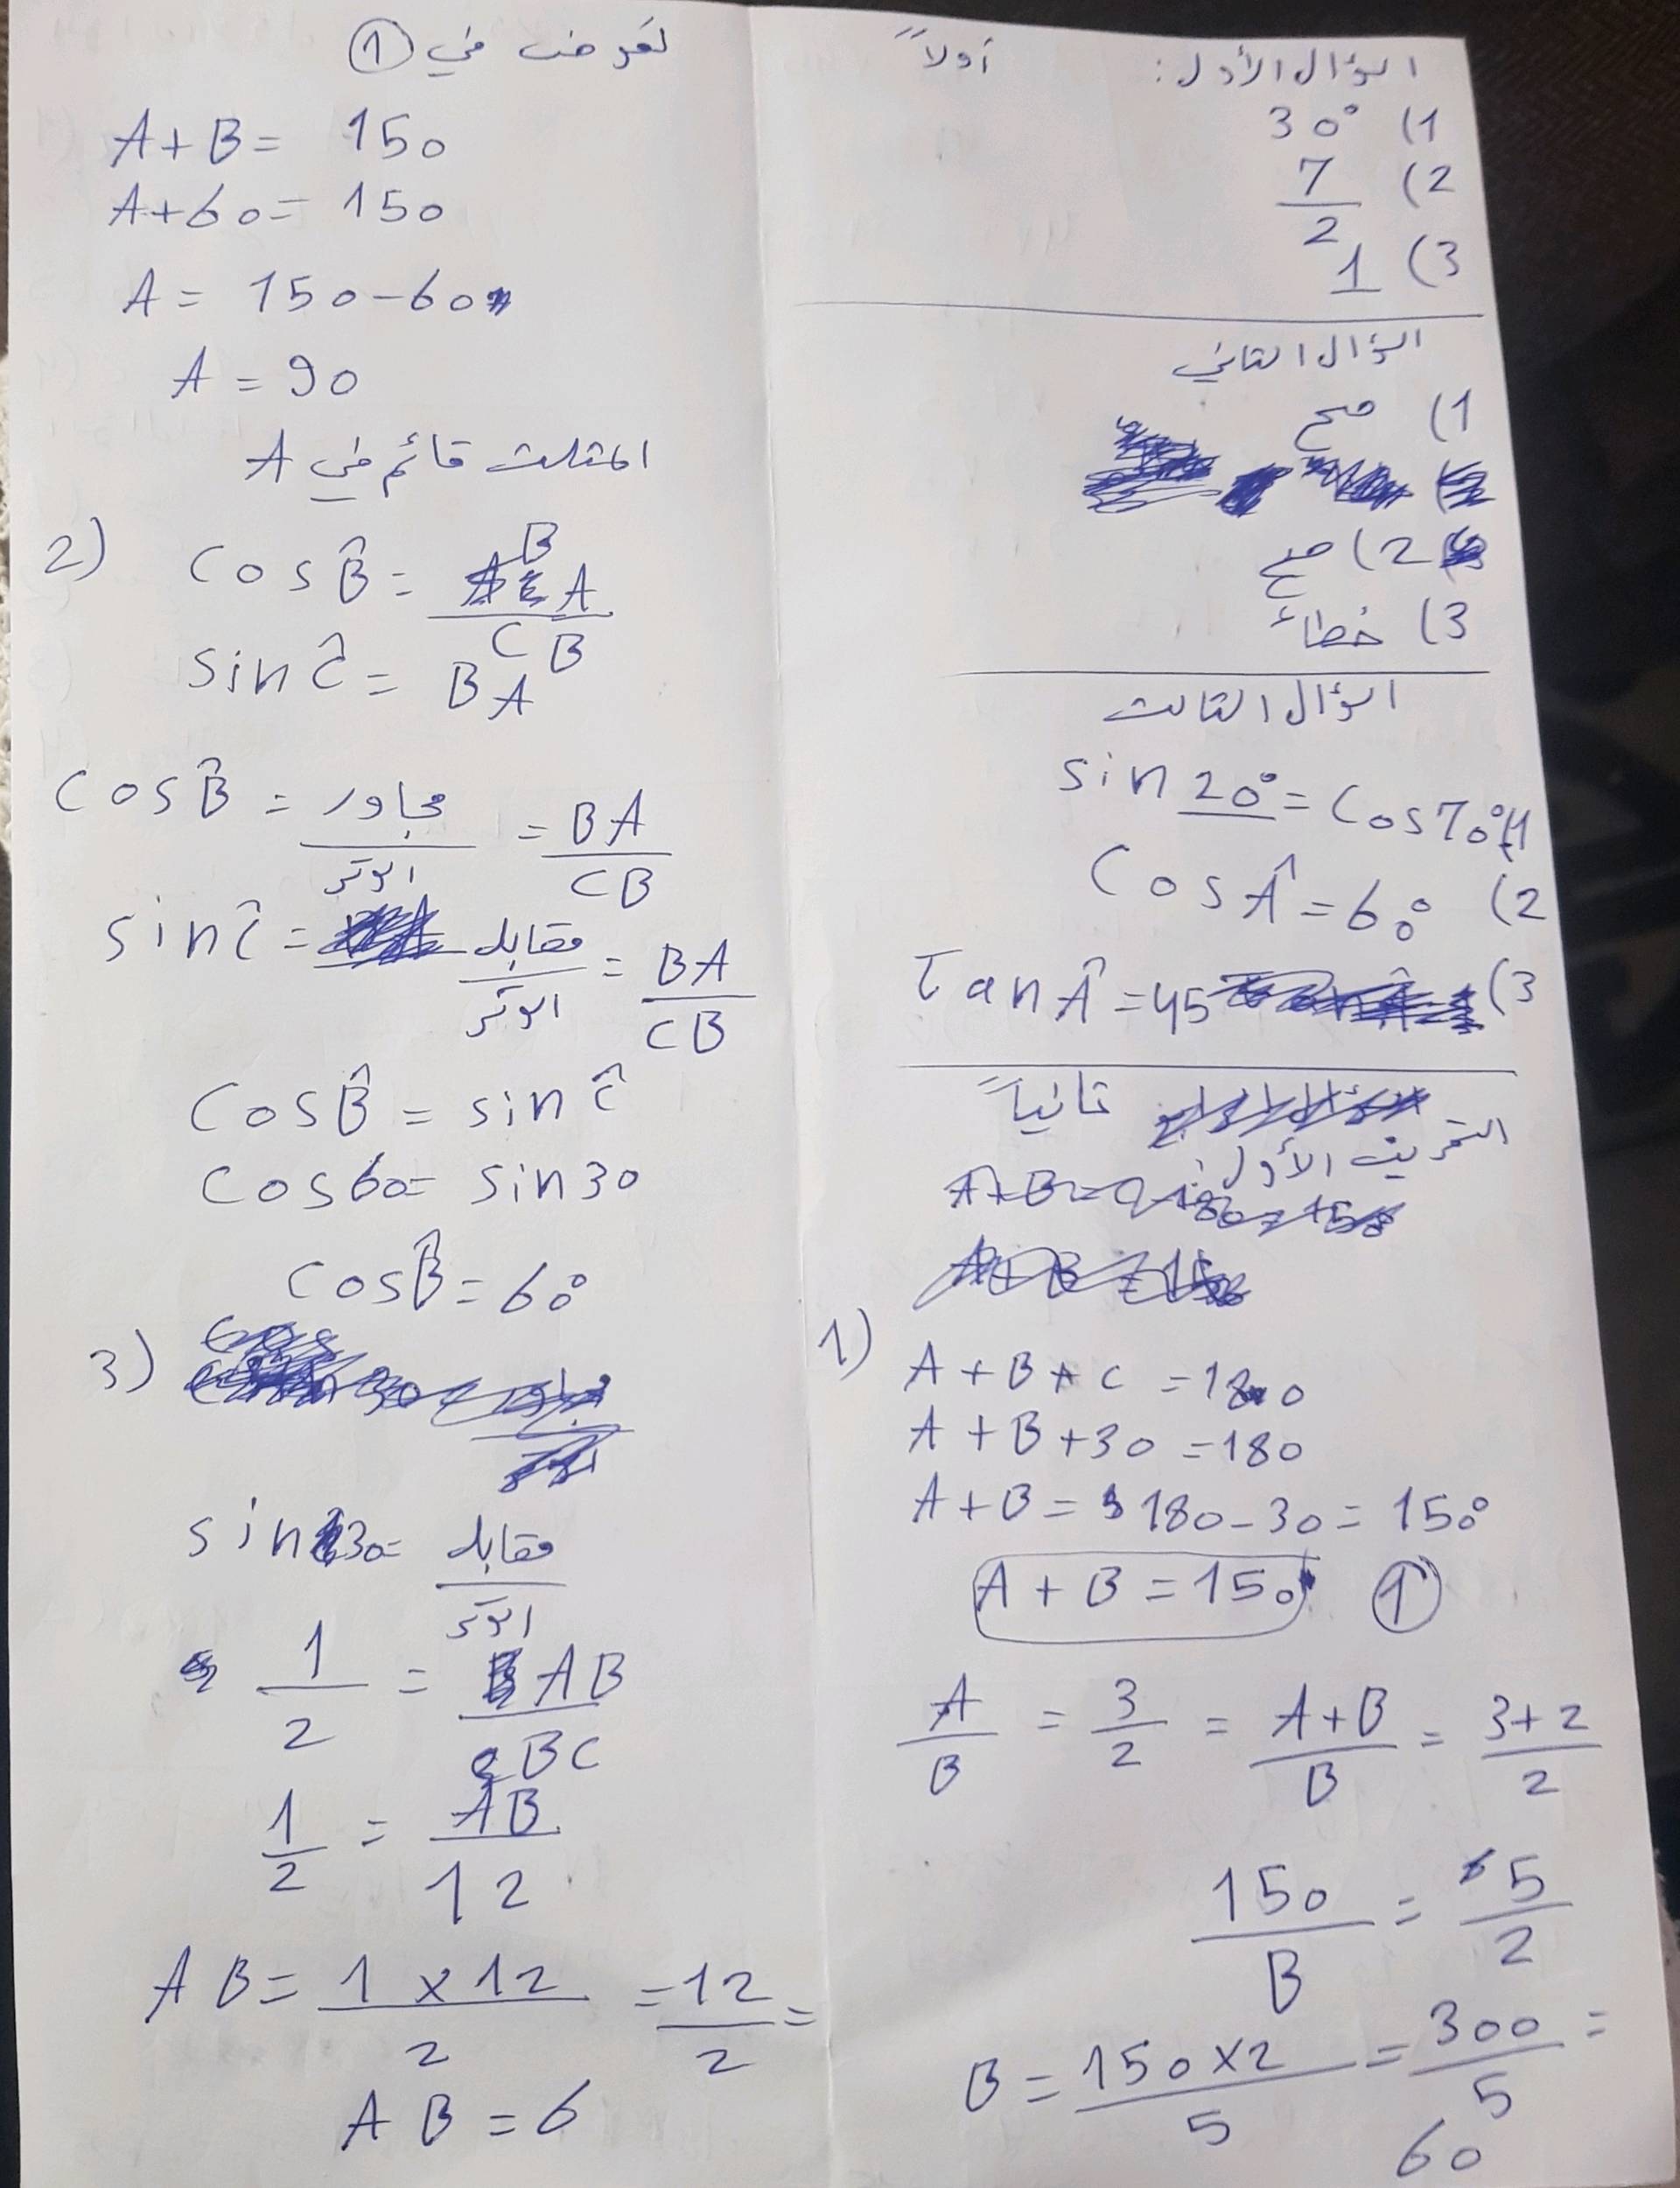 السؤال الأول: أولاً
1) 30°
2) 7/2
3) 1
السؤال الثاني
1) صح
2) صح
3) خطاء
السؤال الثالث
1) sin 20° = cos 70°
2) cos Â = 60°
3) Tan Â = 45
ثانياً
التمرين الأول:
1) A + B + C = 180
A + B + 30 = 180
A + B = 180 - 30 = 150°
A + B = 150 ①
A/B = 3/2 = A+B/B = 3+2/2
150/B = 5/2
B = 150×2/5 = 300/5 =
60
نعوض في ①
A + B = 150
A + 60 = 150
A = 150 - 60
A = 90
المثلث قائم في A
2) cos B̂ = BA/CB
sin Ĉ = BA
cos B̂ = مجاور/الوتر = BA/CB
sin Ĉ = مقابل/الوتر = BA/CB
cos B̂ = sin Ĉ
cos 60 = sin 30
cos B̂ = 60°
3)
sin 30 = مقابل/الوتر
1/2 = AB/BC
1/2 = AB/12
AB = 1 × 12/2 = 12/2 =
AB = 6